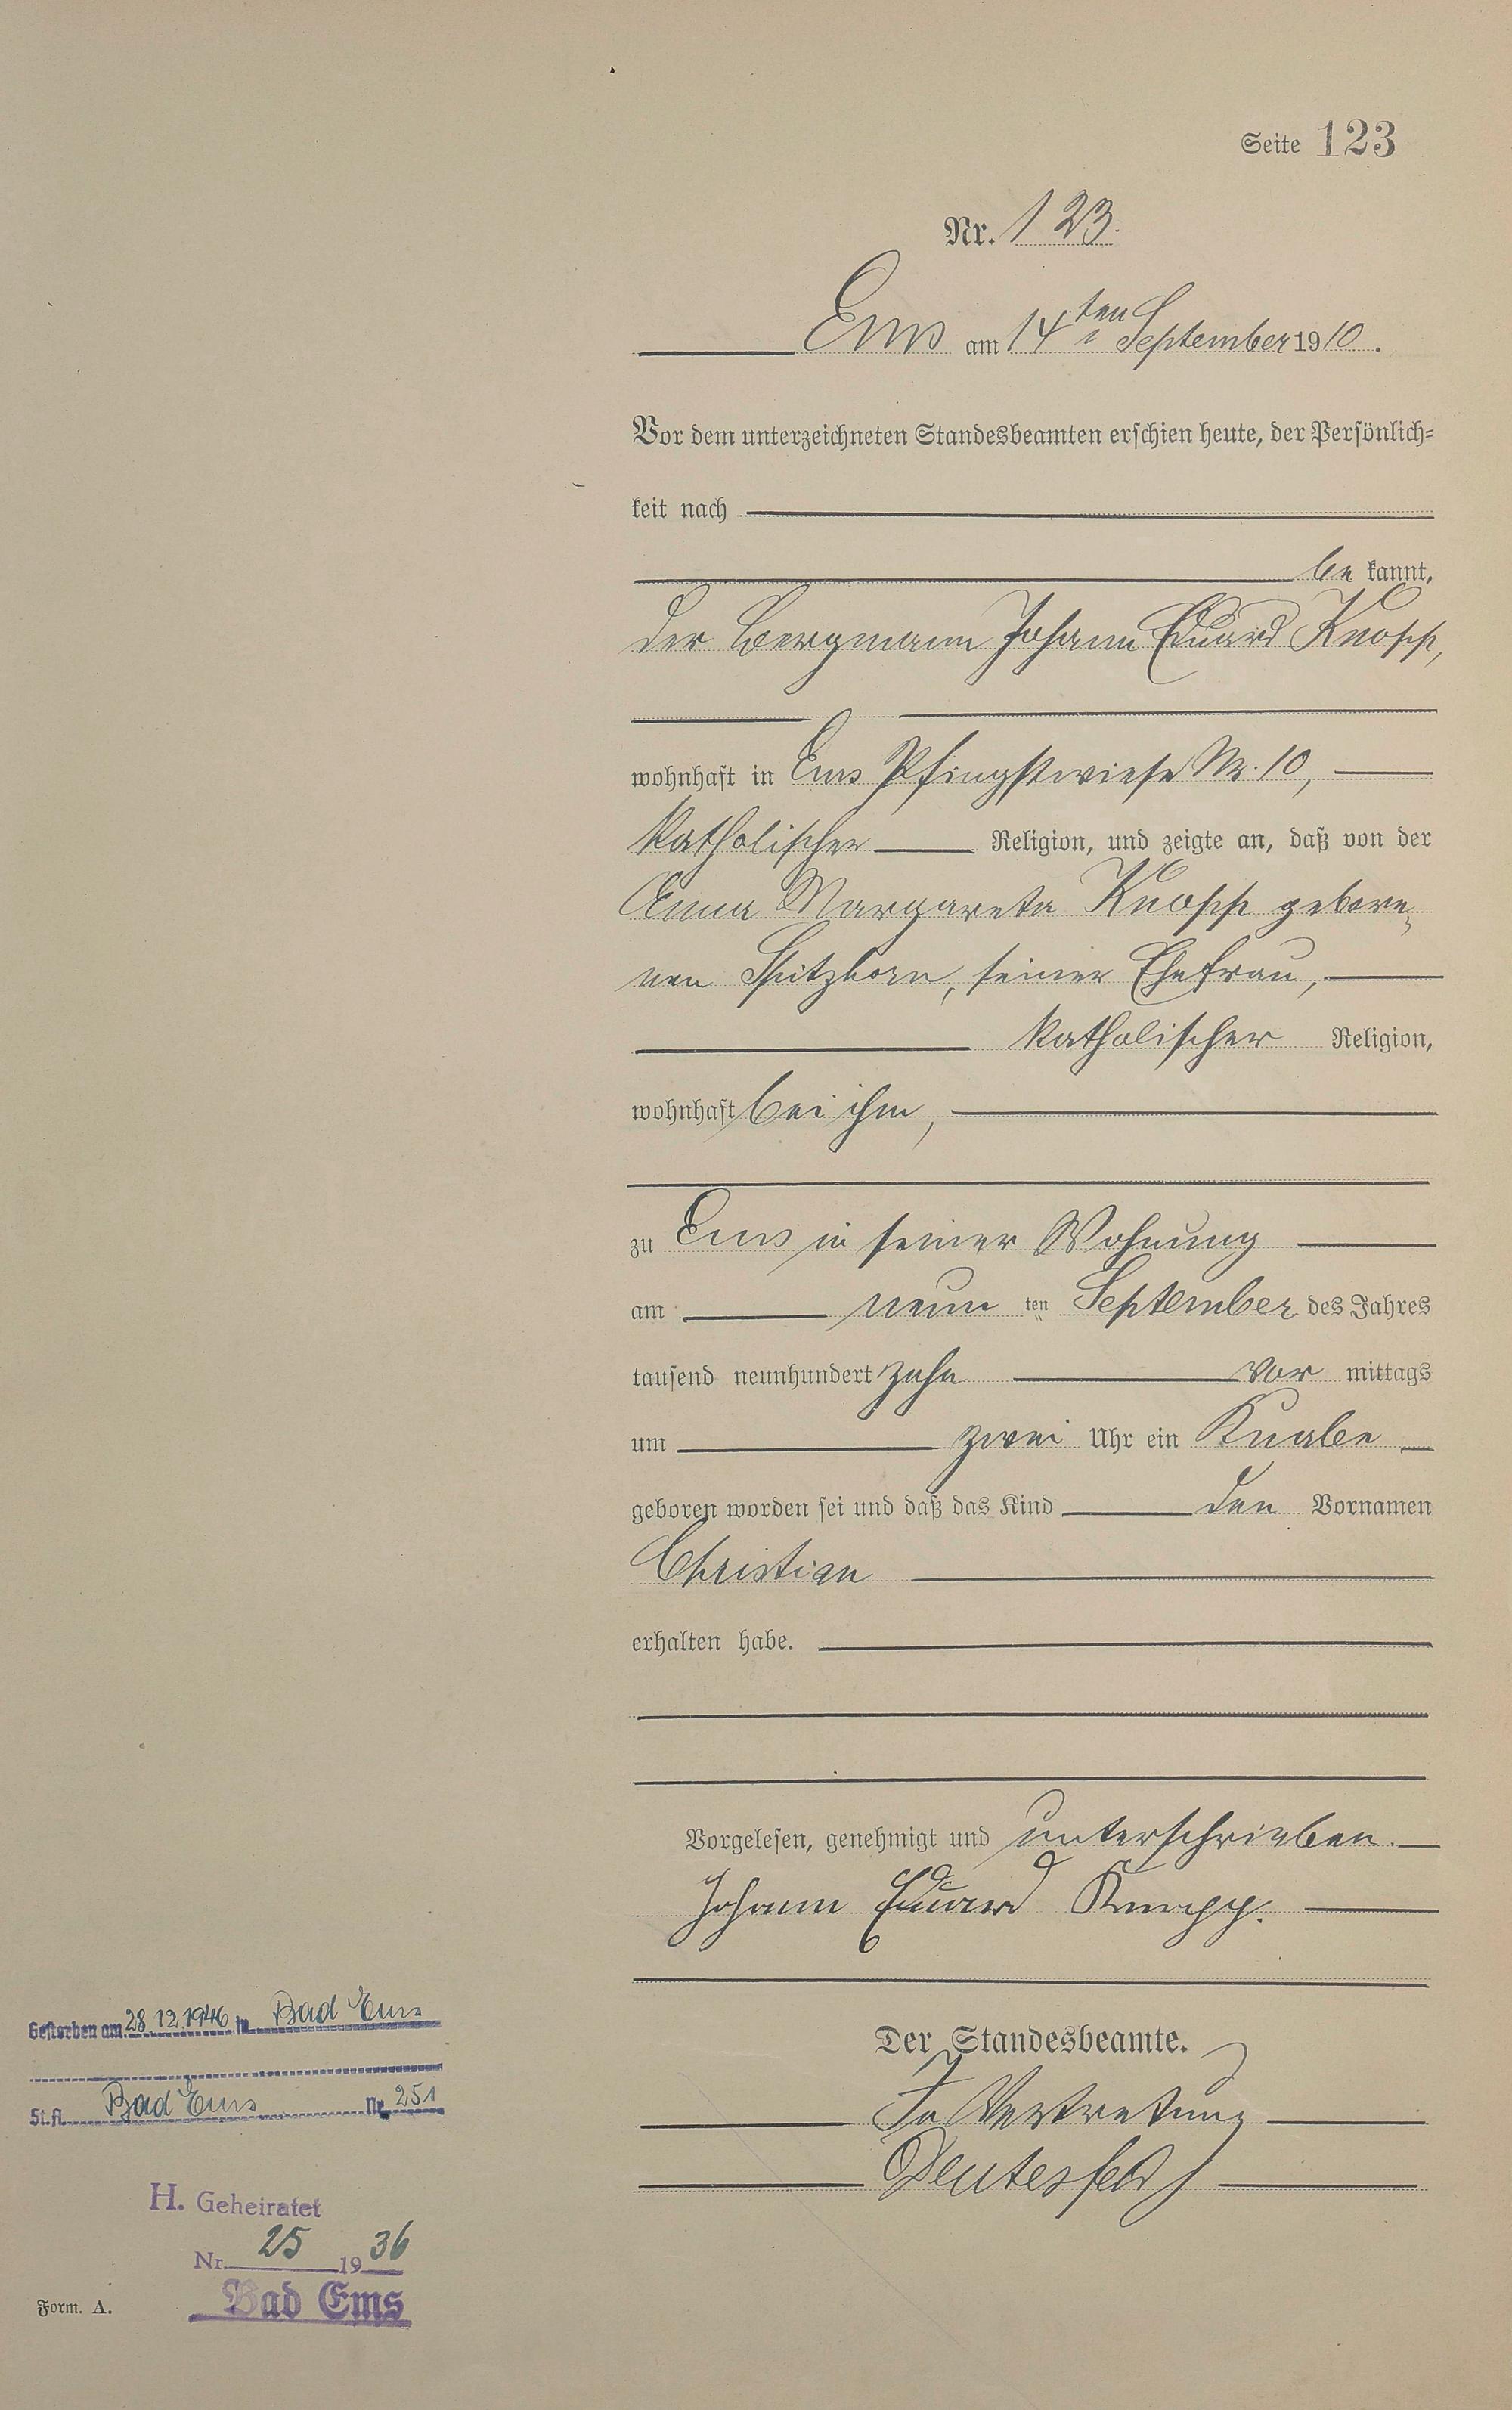 Seite 123
Nr. 123.
Ems am 14ten September 1910.
Vor dem unterzeichneten Standesbeamten erschien heute, der Persönlich=
keit nach
be kannt,
der Bergmann Johann Eduard Knopp,
wohnhaft in Ems Pfingstwiese Nr. 10,
katholischer Religion, und zeigte an, daß von der
Anna Margareta Knopp gebore=
nen Spitzhorn, seiner Ehefrau,
katholischer Religion,
wohnhaft bei ihm,
zu Ems in seiner Wohnung
am neun ten September des Jahres
tausend neunhundert zehn vor mittags
um zwei Uhr ein Knabe
geboren worden sei und daß das Kind den Vornamen
Christian
erhalten habe.
Vorgelesen, genehmigt und unterschrieben.
Johann Eduard Knopp.
Der Standesbeamte.
In Vertretung
Gestorben am 28.12.1946 in Bad Ems
St.A. Bad Ems Nr. 251
H. Geheiratet
Nr. 25 1936
Bad Ems
Form. A.